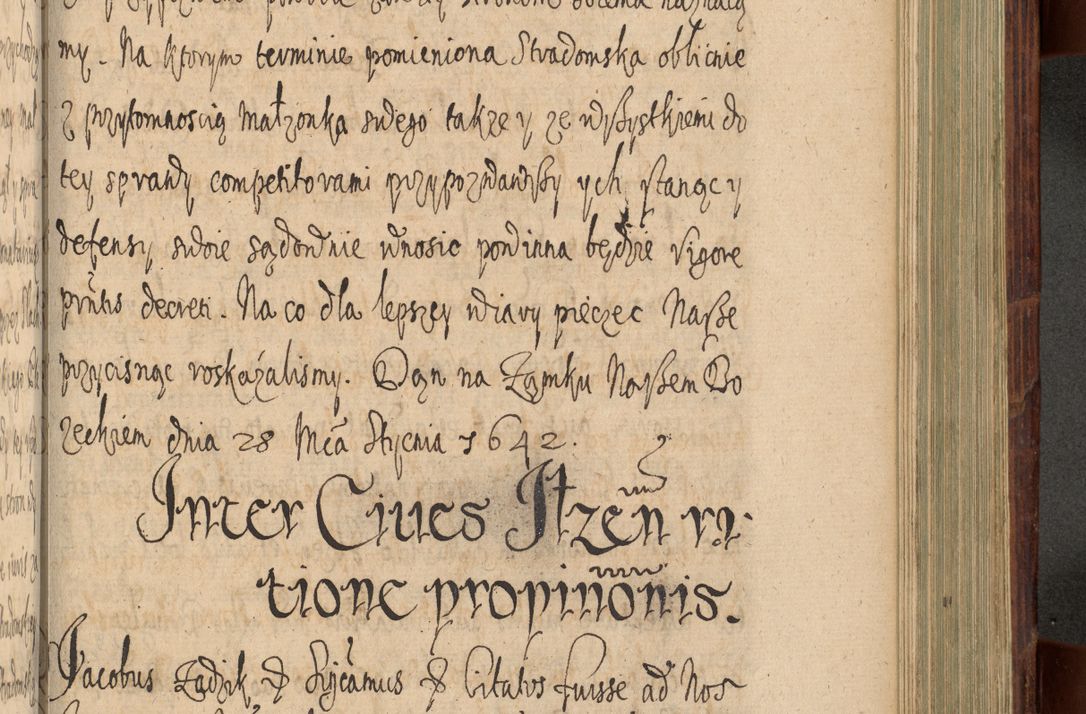 my. Na ktorym terminie pomieniona Stradomska oblicnie
z przytomnoscią małzonka swego takze y ze wszystkiemi do
tey sprawy competitorami przypozwawszy ych, stanąc y
defensy swoie sądownie wnosic powinna będzie vigore
prñtis decreti. Na co dla lepszey wiary pieczec Nasze
przycisnąc roskazalismy. Dąn na Zamku Naszem Bo
zeckiem dnia 28 Mca Stycnia 1642.
Inter Ciues Ilzen ra
tione propinonis.
Jacobus Zadzik & Citatos fuisse ad Nos